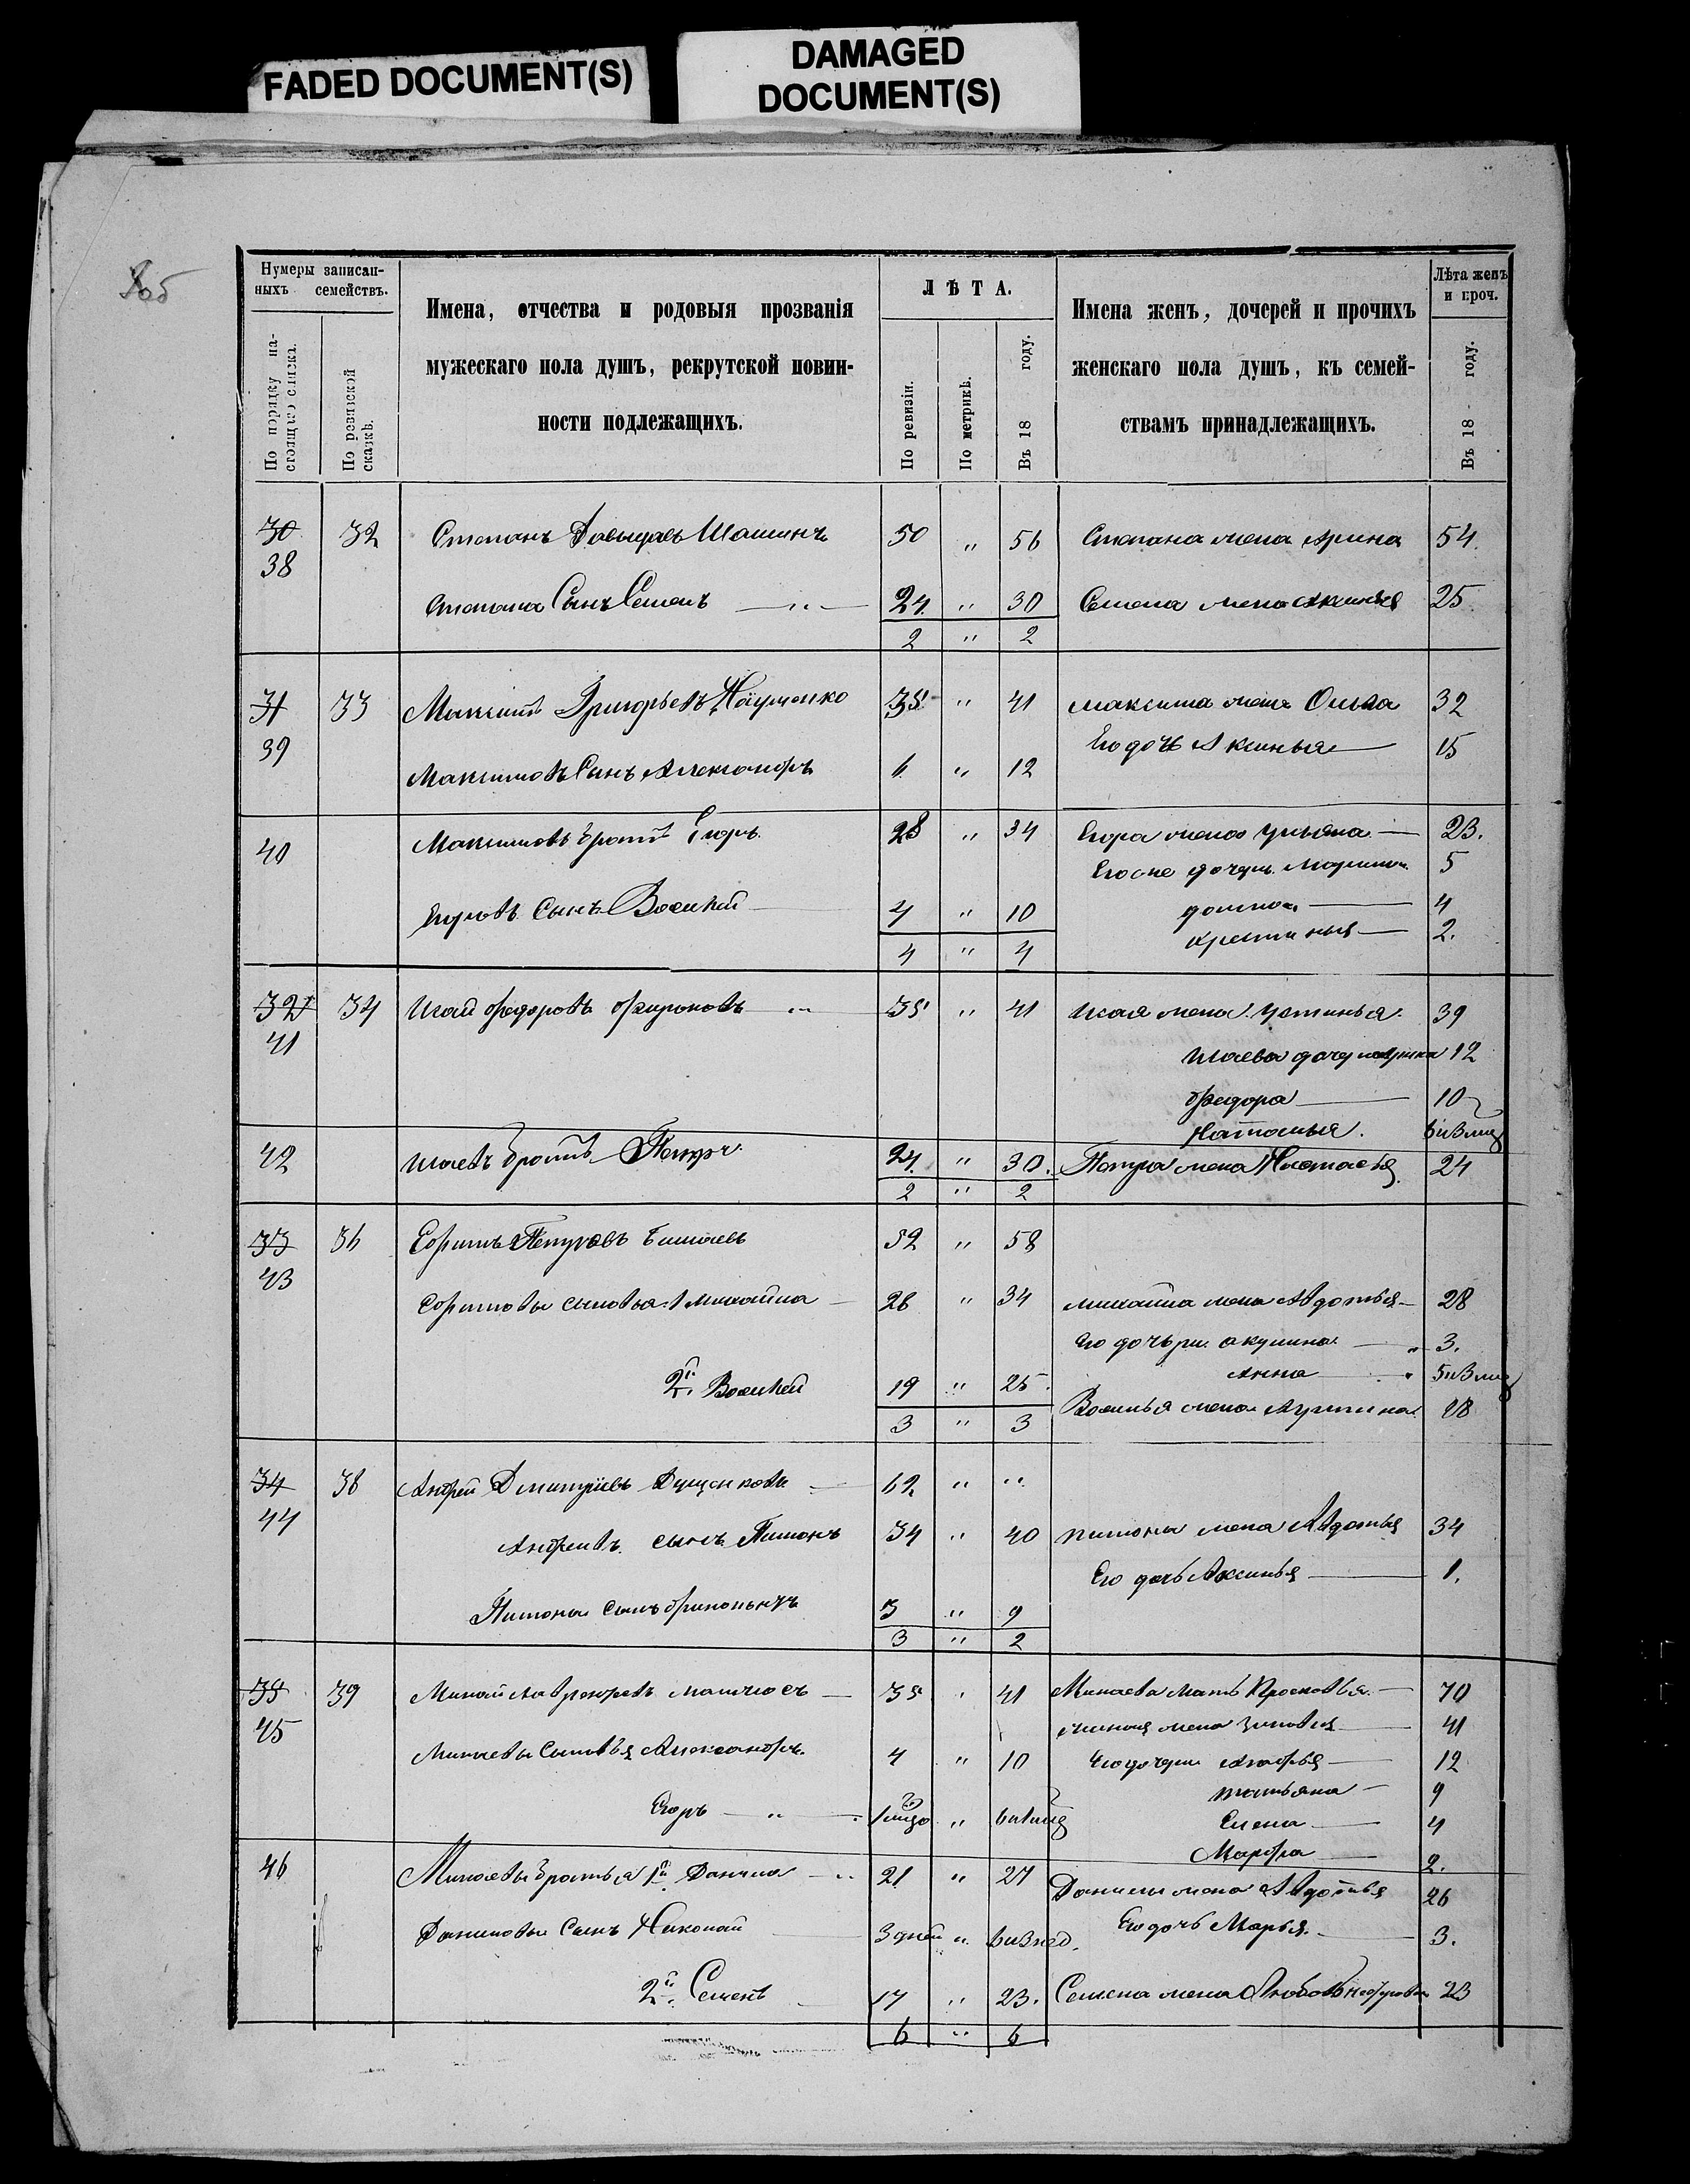 FADED DOCUMENT(S)
DAMAGED
DOCUMENT(S)
Нумеры записан-
ныхъ семействъ.
По порядку на-
стоящаго списка.
По ревизской
сказкѣ.
Имена, отчества и родовыя прозванія
мужескаго пола душъ, рекрутской повин-
ности подлежащихъ.
ЛѢТА.
По ревизіи.
По метрикѣ.
Въ 18 году.
Имена женъ, дочерей и прочихъ
женскаго пола душъ, къ семей-
ствамъ принадлежащихъ.
Лѣта женъ
и проч.
Въ 18 году.
30 32 Степанъ Давыдовъ Шашинъ 50 " 56 Степана жена Арина 54.
38
Степана Сынъ Семенъ — " — 24. " 30 Семена жена Аксинья 25
2 " 2
31 33 Максимъ Григорьевъ Науменко 35 " 41 Максима жена Ольга 32
39 Его дочь Аксинья — 15
Максимовъ Сынъ Александръ 6 " 12
40 Максимовъ братъ Егоръ 28 " 34 Егора жена Ульяна — 23.
Егоже дочери Марина 5
Егоровъ Сынъ Василий — 4 " 10 Домна — 4
Кристинья — 2.
4 " 4
32 34 Исай Федоровъ 35 " 41 Исая жена Устинья 39
41
Исаева дочь Арина 12
Федора — 10
Наталья. 6 и 3 мц
42 Исаевъ братъ Петръ 24. " 30. Петра жена Настасья 24
2 " 2
33 36 Ефимъ Петровъ 52 " 58
43
Ефимовы сыновья: 1 Михайла — 28 " 34 Михайла жена Авдотья — 28
Его дочьри Акулина — " 3.
2й Василий 19 " 25. Анна — 5 и 3 мц
Василья жена 18
3 " 3
34 38 Андрей Дмитріевъ — 62 " "
44
Андреевъ сынъ Пимонъ 34 " 40 Пимона жена Авдотья 34
Его дочь Аксинья — 1.
Пимона сынъ 3 " 9
3 " 2
35 39 Минай 35 " 41 Минаева мать Просковья — 70
45 Миная жена Зиновья — 41
Минаевы сыновья Александръ. 4 " 10 Его дочери Агафья — 12
Татьяна — 9
Егоръ — " — Елена — 4
Марфа — 2.
46 Минаевы братья 1й Данила — " 21 " 27 Данилы жена Авдотья 26
Даниловы Сынъ Николай 3 дней " 6 и 3 нед. Его дочь Марья. — 3.
2й Семенъ 17 " 23. Семена жена Любовь 23
6 " 6